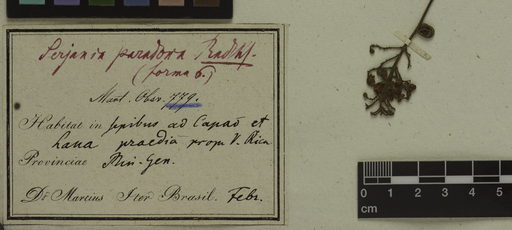 Serjania paradoxa Radlk.
(forma b.)
Mart. Obs. 779.
Habitat in sepibus ad Capaõ et
Lana praedia prope V. Rica
Provinciae Min. Gen.
Dr. Martius Iter Brasil. Febr.
0 1 2 3 4 5
cm